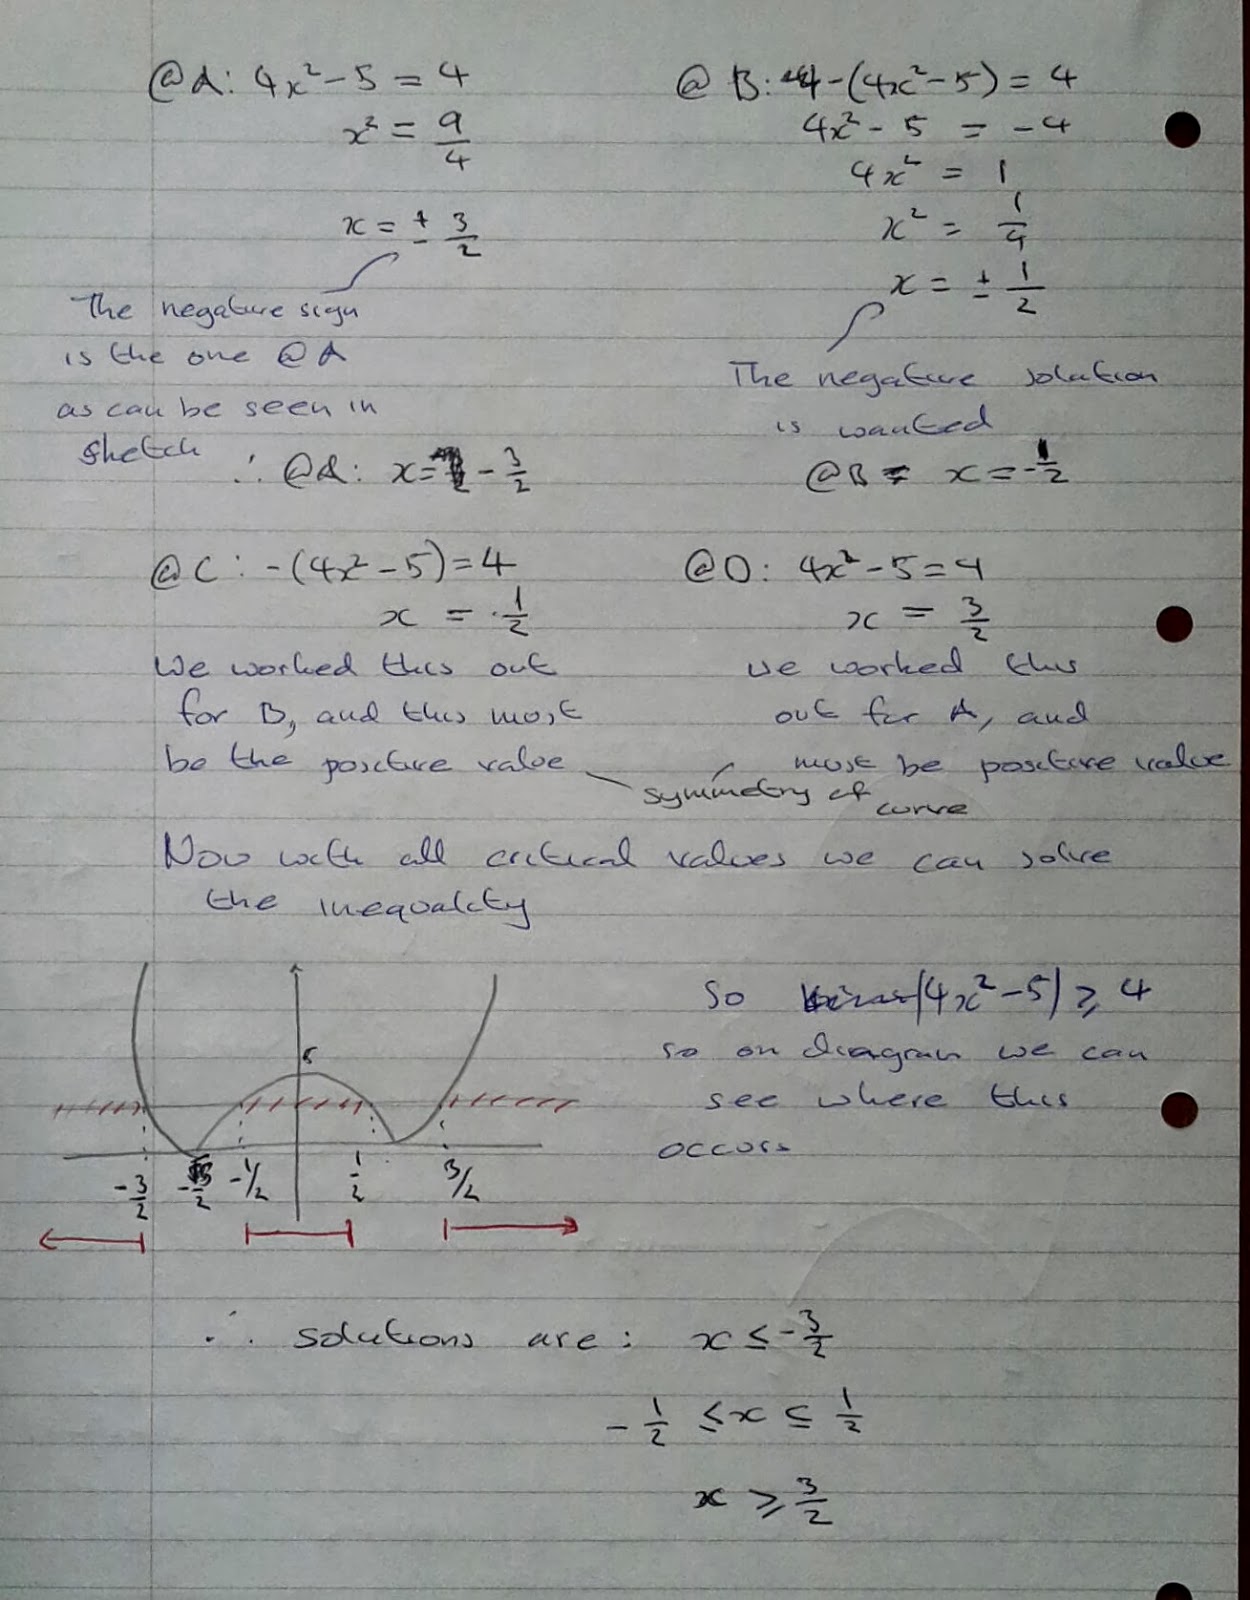 @A: 4x² - 5 = 4
x² = 9/4
x = ± 3/2
The negative sign
is the one @ A
as can be seen in
sketch
∴ @A: x = - 3/2
@ B: -(4x² - 5) = 4
4x² - 5 = -4
4x² = 1
x² = 1/4
x = ± 1/2
The negative solution
is wanted
@B x = -1/2
@ C: -(4x² - 5) = 4
x = 1/2
We worked this out
for B, and this most
be the positive value
@ D: 4x² - 5 = 4
x = 3/2
we worked this
out for A, and
most be positive value
symmetry of
curve
Now with all critical values we can solve
the inequality
5
-3/2 -1/2 1/2 3/2
So |4x² - 5| ≥ 4
so on diagram we can
see where this
occurs
∴ solutions are: x ≤ -3/2
-1/2 ≤ x ≤ 1/2
x ≥ 3/2